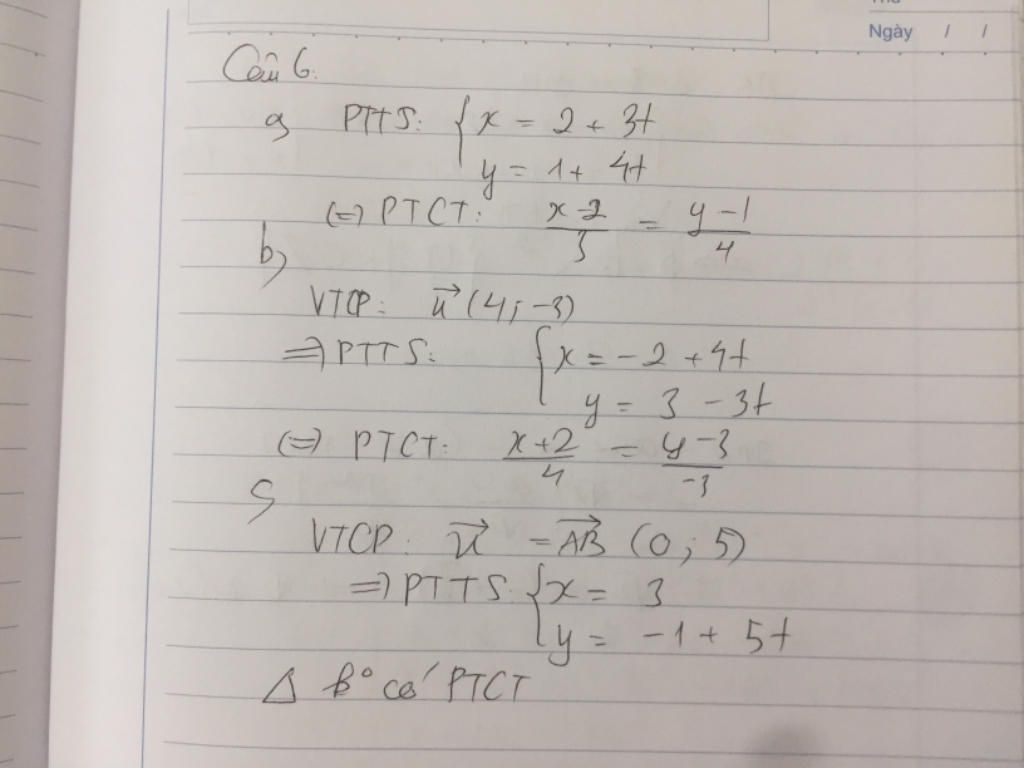 Ngày / /
Câu 6.
a) PTTS: { x = 2 + 3t
y = 1 + 4t
(=) PTCT: x-2/3 = y-1/4
b)
VTCP: u⃗ (4; -3)
=) PTTS: { x = -2 + 4t
y = 3 - 3t
(=) PTCT: x+2/4 = y-3/-3
c)
VTCP: u⃗ = AB⃗ (0; 5)
=) PTTS: { x = 3
y = -1 + 5t
Δ k° có PTCT